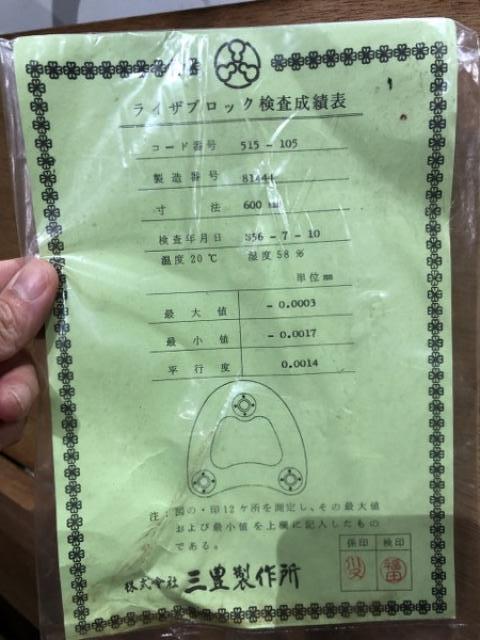 ライザブロック検査成績表
コード番号 515 - 105
製造番号 81444
寸法 600 mm
検査年月日 S56 - 7 - 10
温度20℃ 湿度58%
単位mm
最大値 - 0.0003
最小値 - 0.0017
平行度 0.0014
注:図の・印12ケ所を測定し、その最大値
および最小値を上欄に記入したもの
である。
係印 検印
福田
株式会社 三豊製作所